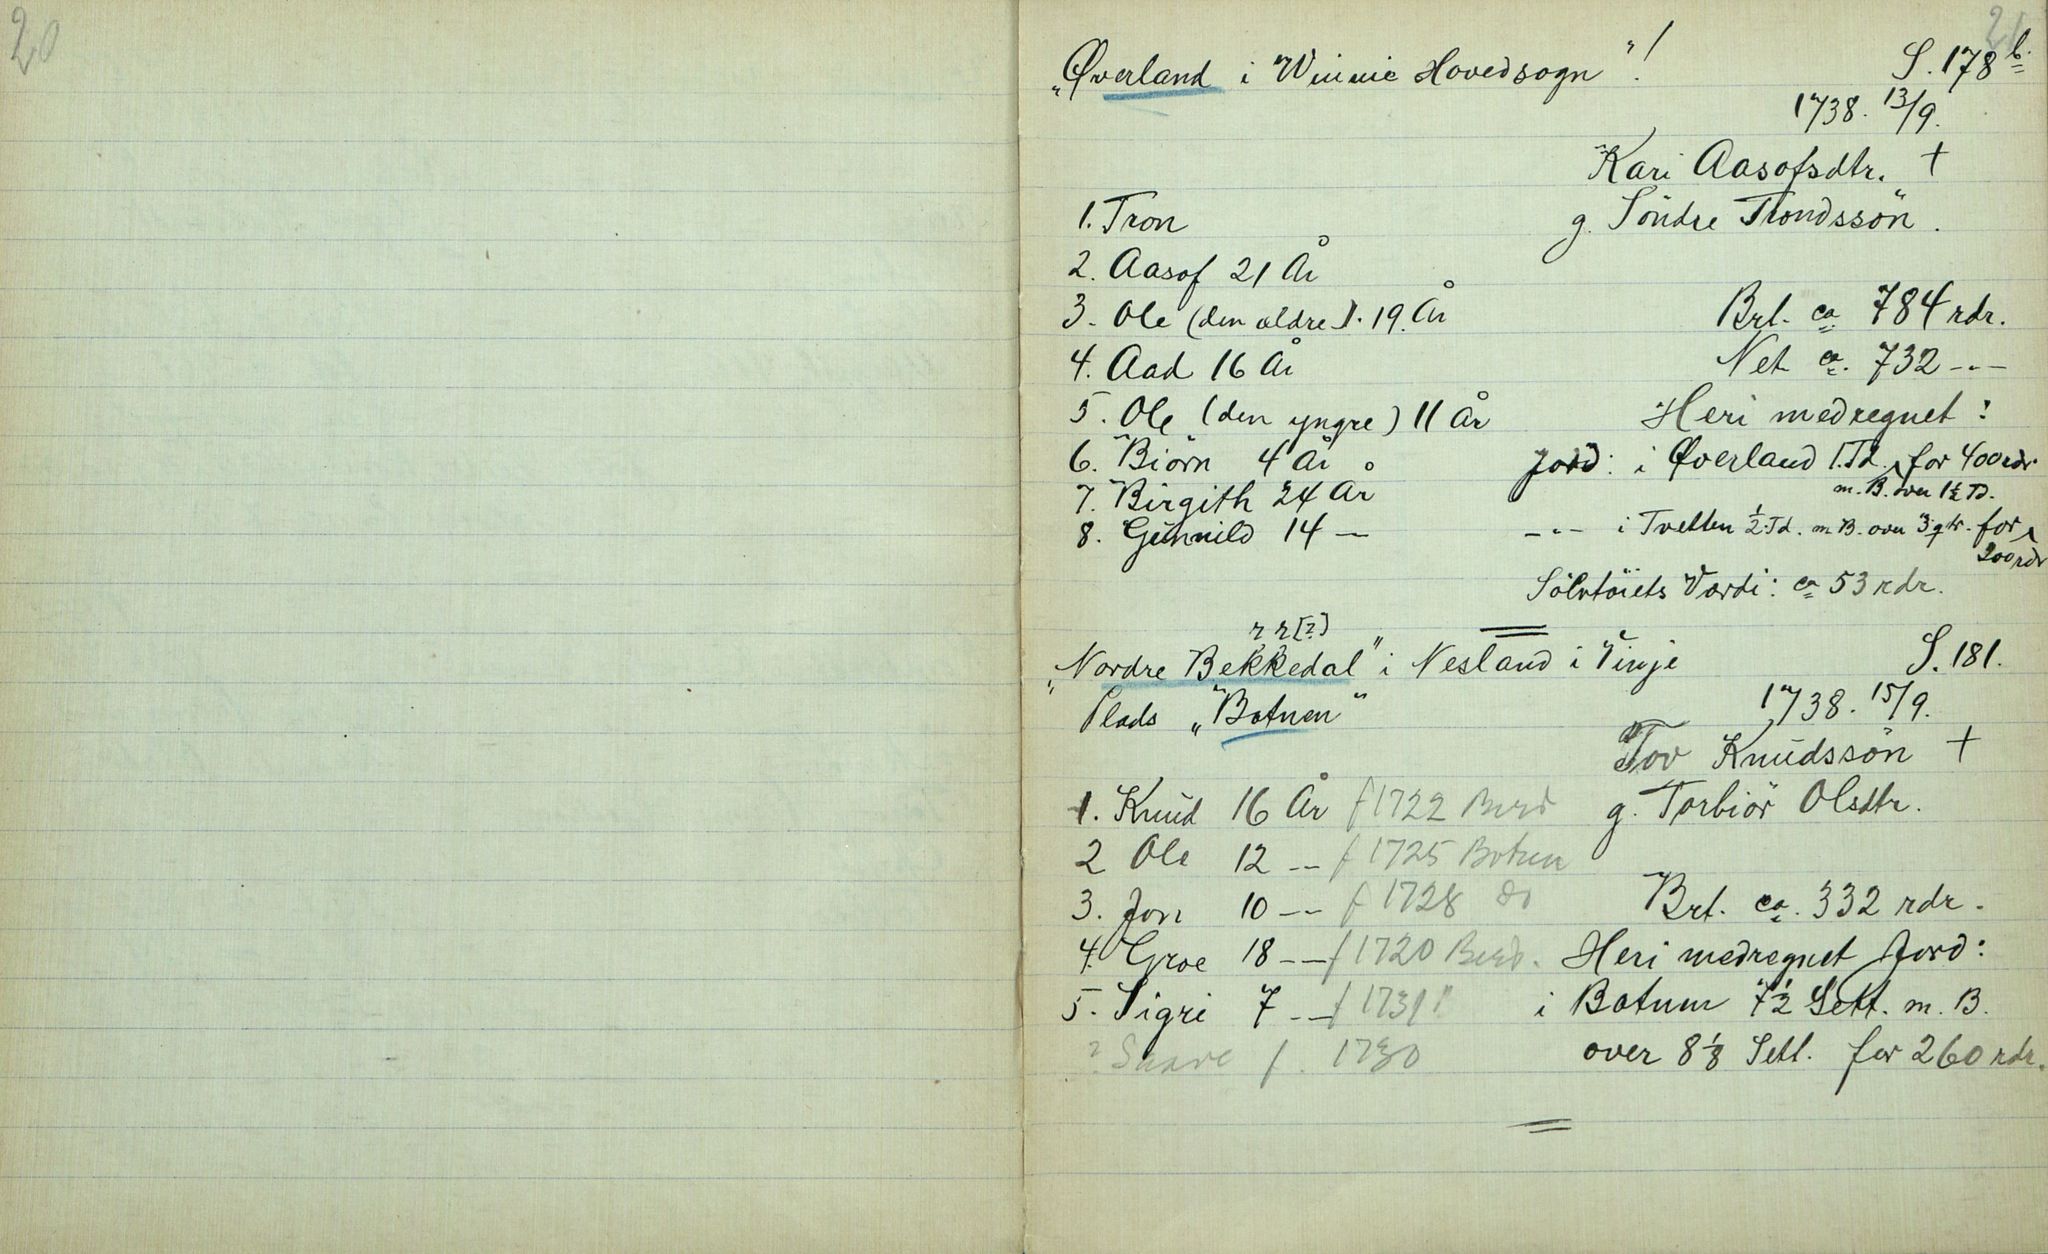 20
21
„Øverland i Winnie Hovedsogn"! S. 178 b.
1738. 13/9.
Kari Aasofsdtr. †
1. Tron g. Söndre Trondssön.
2. Aasof 21 År
3. Ole (den ældre). 19. År Brt. ca. 784 rdr.
4. Aad 16 År Net ca. 732 -"-
5. Ole (den yngre) 11 År Heri medregnet:
6. Biörn 4 År Jord: i Øverland 1. Td. for 400 rdr.
m. B. over 1½ Td.
7. Birgith 24 År
8. Gunnild 14 — -"- i Tvetten ½ Td. m B. over 3 qtr. for
200 rdr
Sölvtöiets Værdi: ca 53 rdr.
r r [?]
„Nordre Bekkedal" i Nesland i Vinje S. 181.
Plads „Botnen" 1738. 15/9.
Tov Knudssön †
1. Knud 16 År f 1722 g. Torbiör Olsdtr.
2 Ole 12 -"- f 1725 Botnen
3. Jon 10 -"- f 1728 do Brt. ca. 332 rdr.
4. Groe 18 -"- f 1720 Heri medregnet Jord:
5. Sigri 7 -"- f 1731 i Botnen 7½ Sett. m. B.
? f. 1730 over 8⅛ Sett. for 260 rdr.